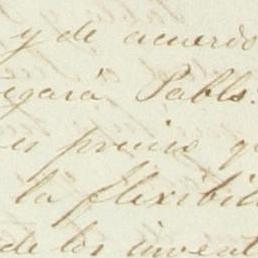 y de acuerdo
egará Pablo.
es preciso q
la flexibili
de los invent